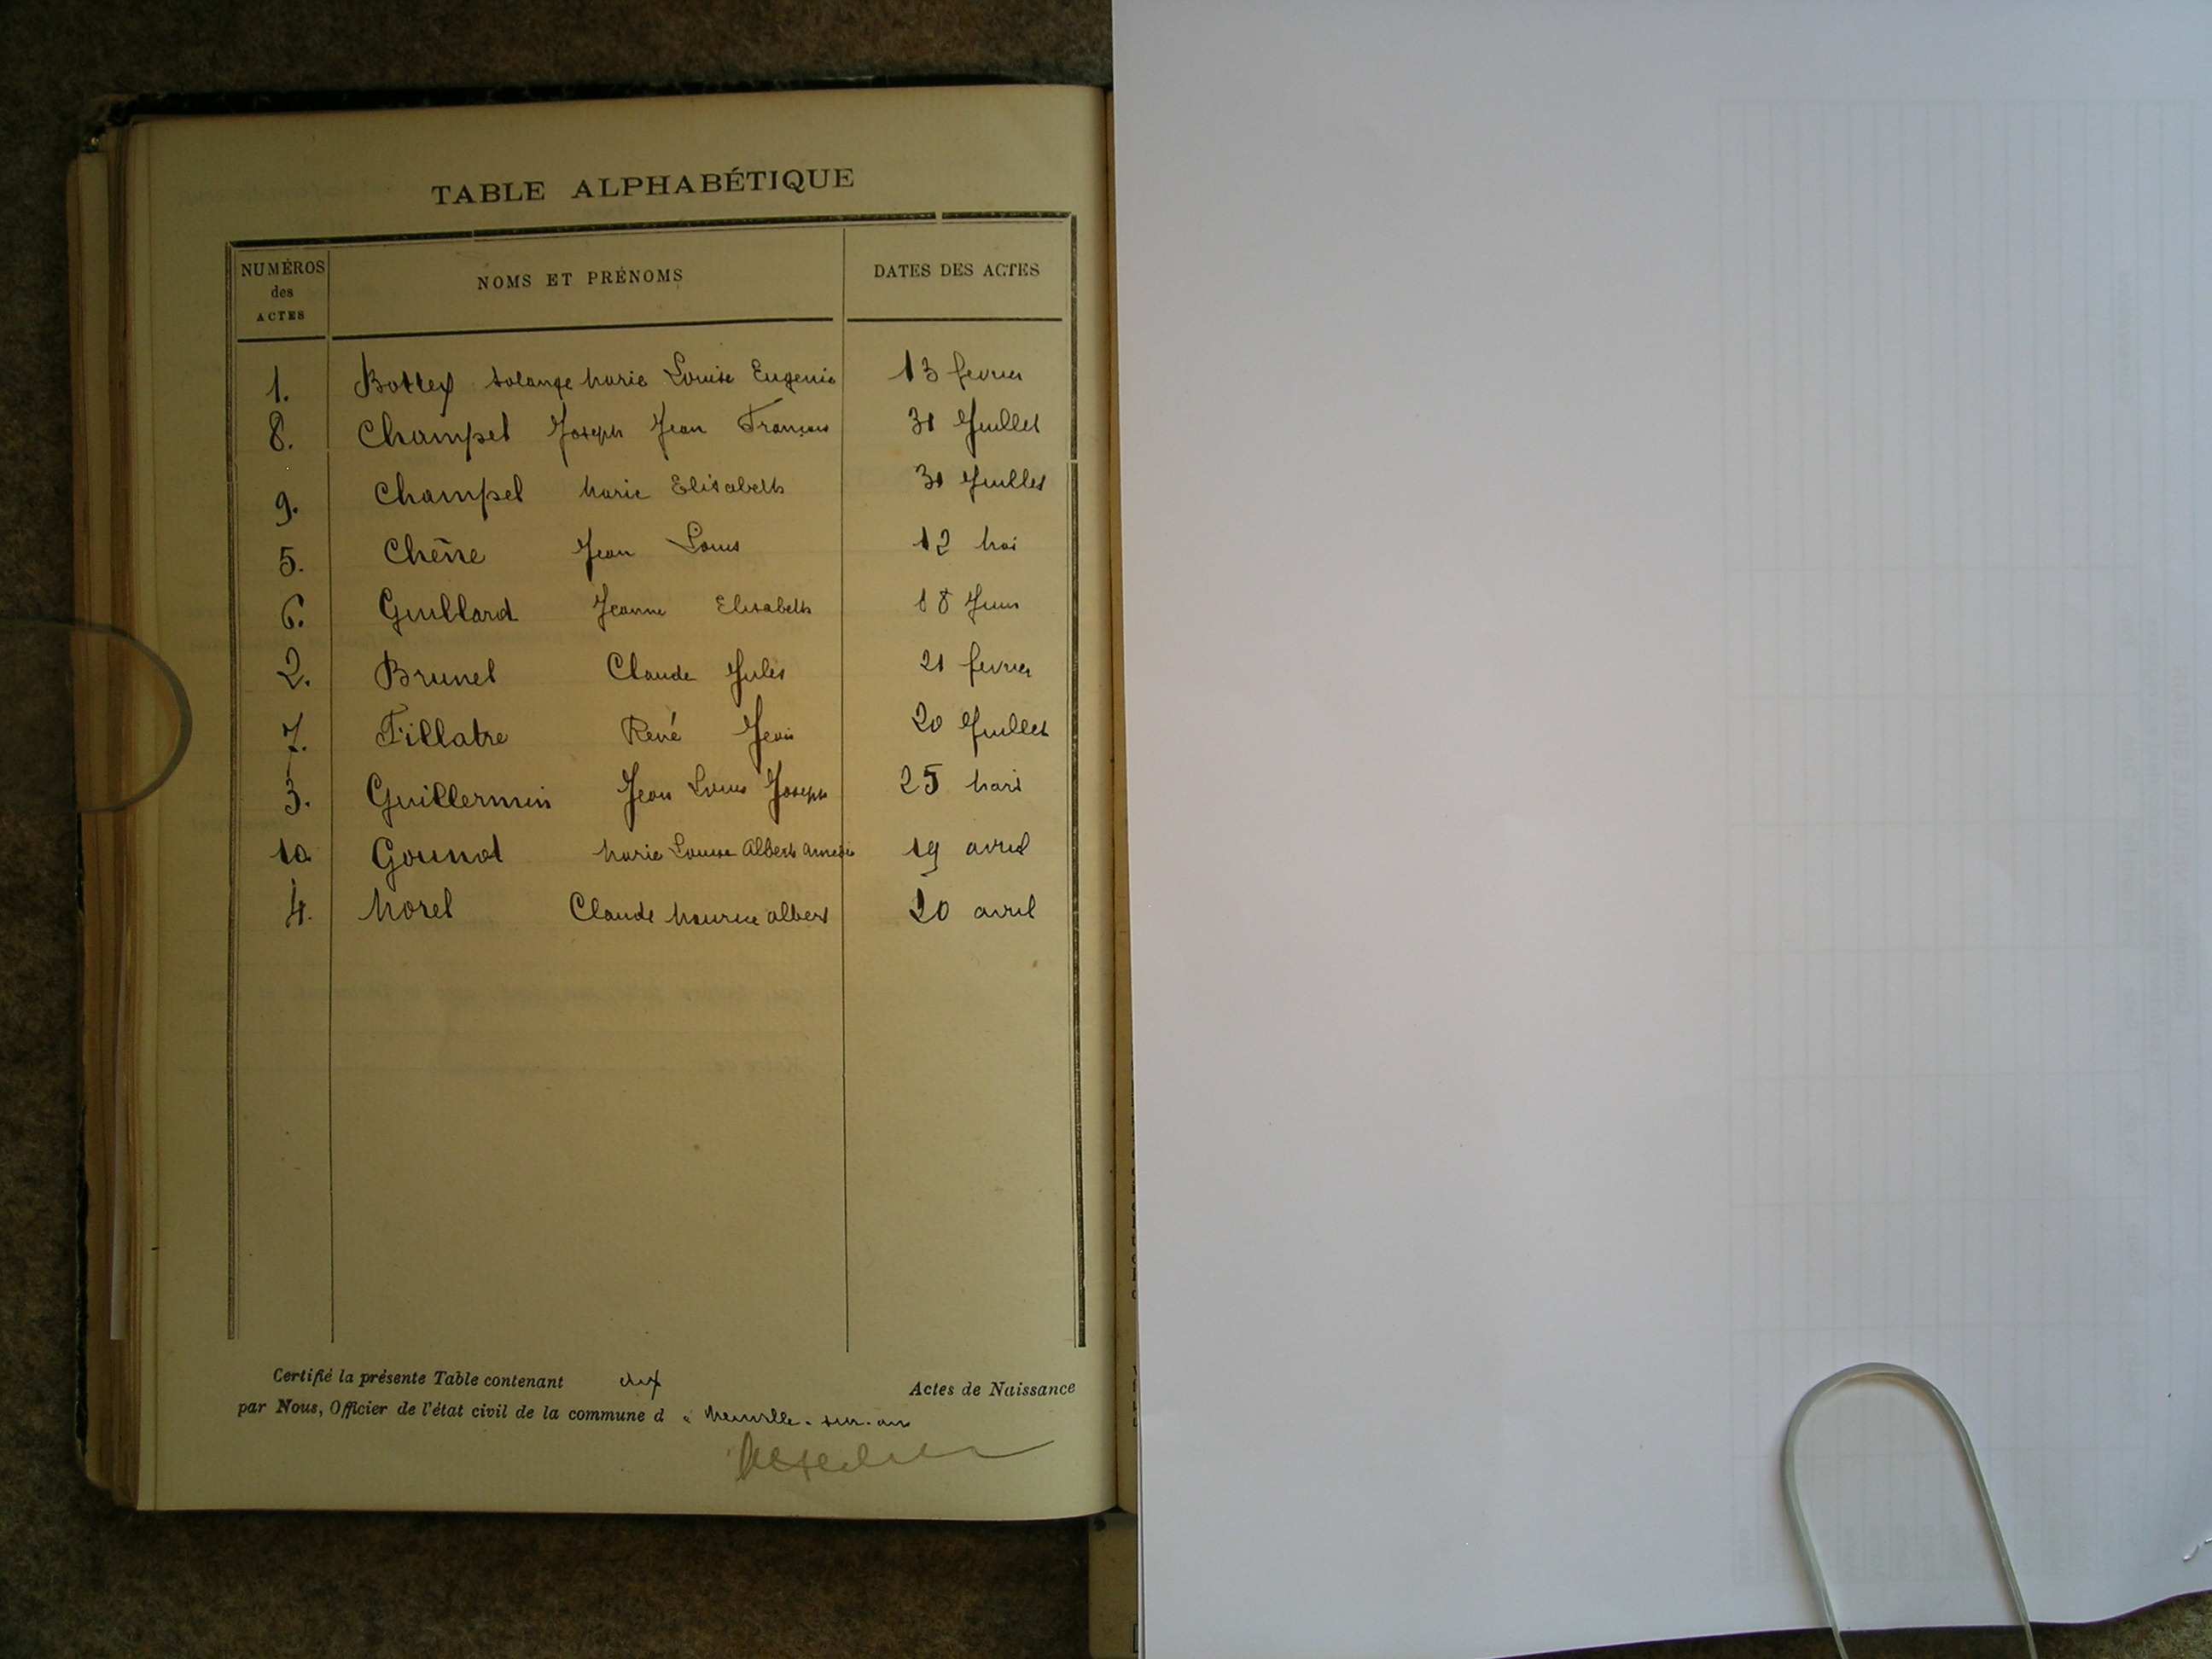 TABLE ALPHABÉTIQUE
NUMÉROS des ACTES NOMS ET PRÉNOMS DATES DES ACTES
1. Bottex Solange Marie Louise Eugenie 13 fevrier
8. Champel Joseph Jean François 31 Juillet
9. Champel Marie Elisabeth 31 Juillet
5. Chêne Jean Louis 12 Mai
6. Guillard Jeanne Elisabeth 18 Juin
2. Brunel Claude Jules 21 fevrier
7. Fillatre René Jean 20 Juillet
3. Guillermin Jean Louis Joseph 25 Mars
10 Gounot Marie Louise Albert 19 avril
4. Morel Claude Maurice albert 20 avril
Certifié la présente Table contenant dix Actes de Naissance
par Nous, Officier de l'état civil de la commune d e Neuville-sur-ain